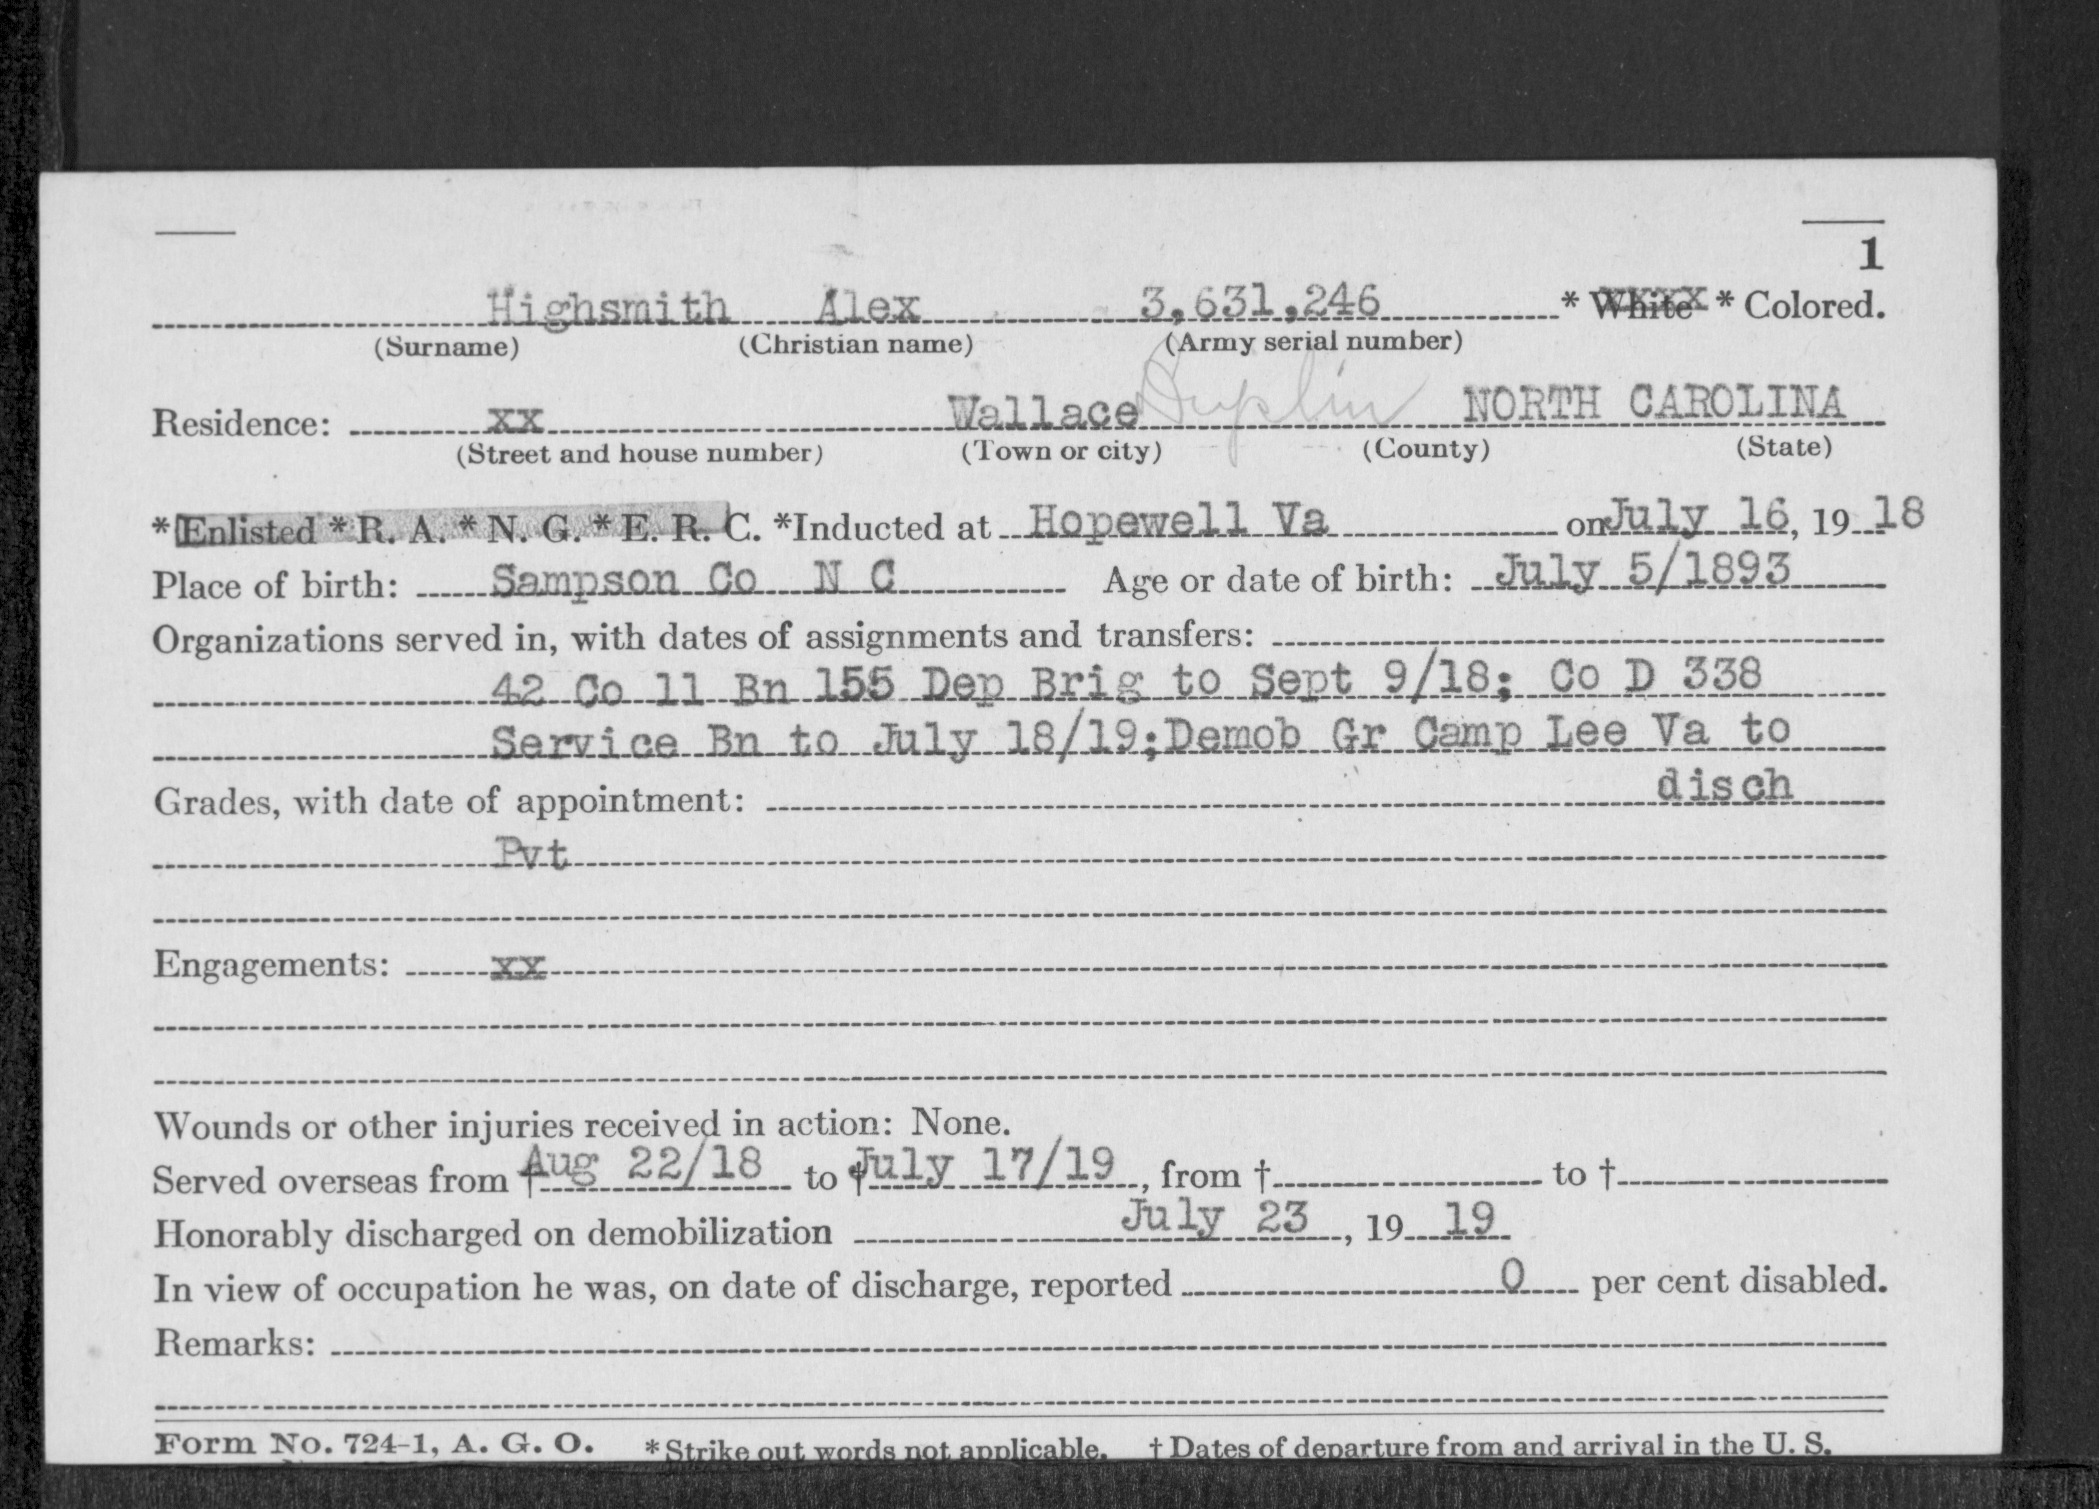 1
Highsmith Alex 3,631,246 * White * Colored.
(Surname) (Christian name) (Army serial number)
Residence: xx Wallace Duplin NORTH CAROLINA
(Street and house number) (Town or city) (County) (State)
*Enlisted *R. A. *N. G. *E. R. C. *Inducted at Hopewell Va on July 16, 19 18
Place of birth: Sampson Co N C Age or date of birth: July 5/1893
Organizations served in, with dates of assignments and transfers:
42 Co 11 Bn 155 Dep Brig to Sept 9/18; Co D 338
Service Bn to July 18/19;Demob Gr Camp Lee Va to
disch
Grades, with date of appointment:
Pvt
Engagements: xx
Wounds or other injuries received in action: None.
Served overseas from † Aug 22/18 to † July 17/19, from † to †
Honorably discharged on demobilization July 23, 19 19
In view of occupation he was, on date of discharge, reported 0 per cent disabled.
Remarks:
Form No. 724-1, A. G. O. *Strike out words not applicable. † Dates of departure from and arrival in the U. S.